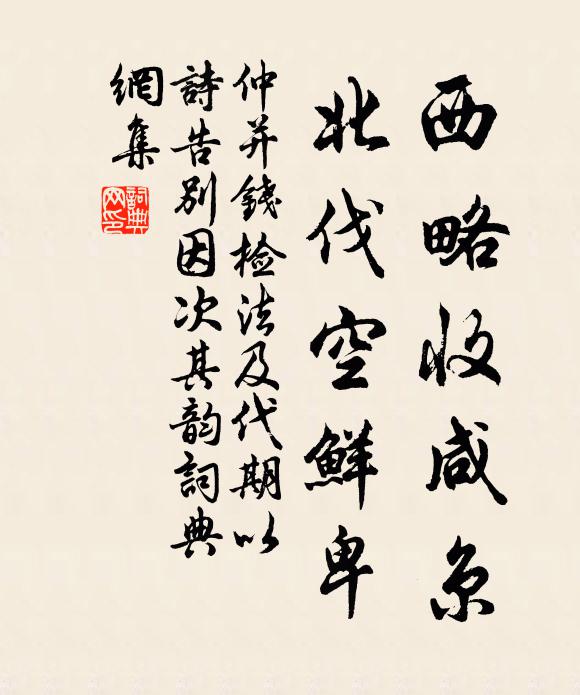 西略收咸京
北伐空鮮卑
仲并錢检法及代期以
詩告别因次其韵詞典
網集
詞典网印